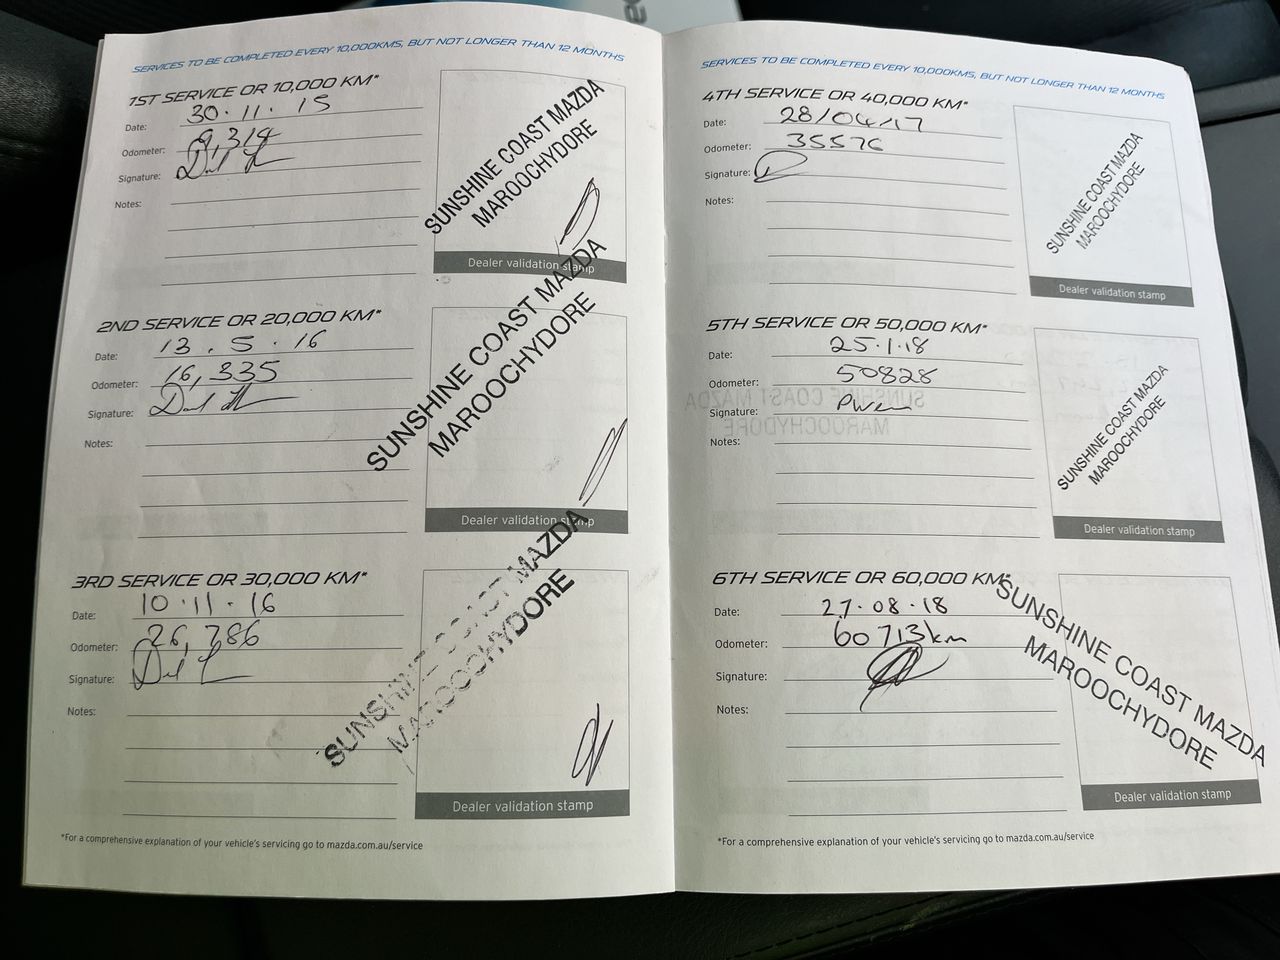 SERVICES TO BE COMPLETED EVERY 10,000KMS, BUT NOT LONGER THAN 12 MONTHS
1ST SERVICE OR 10,000 KM*
Date: 30.11.15
Odometer: 9,314
Signature:
Notes:
SUNSHINE COAST MAZDA
MAROOCHYDORE
Dealer validation stamp
2ND SERVICE OR 20,000 KM*
Date: 13.5.16
Odometer: 16,335
Signature:
Notes:
SUNSHINE COAST MAZDA
MAROOCHYDORE
Dealer validation stamp
3RD SERVICE OR 30,000 KM*
Date: 10.11.16
Odometer: 26,786
Signature:
Notes:
SUNSHINE COAST MAZDA
MAROOCHYDORE
Dealer validation stamp
*For a comprehensive explanation of your vehicle's servicing go to mazda.com.au/service
SERVICES TO BE COMPLETED EVERY 10,000KMS, BUT NOT LONGER THAN 12 MONTHS
4TH SERVICE OR 40,000 KM*
Date: 28/04/17
Odometer: 35576
Signature:
Notes:
SUNSHINE COAST MAZDA
MAROOCHYDORE
Dealer validation stamp
5TH SERVICE OR 50,000 KM*
Date: 25.1.18
Odometer: 50828
Signature:
Notes:
SUNSHINE COAST MAZDA
MAROOCHYDORE
SUNSHINE COAST MAZDA
MAROOCHYDORE
Dealer validation stamp
6TH SERVICE OR 60,000 KM*
Date: 27.08.18
Odometer: 60713km
Signature:
Notes:
SUNSHINE COAST MAZDA
MAROOCHYDORE
Dealer validation stamp
*For a comprehensive explanation of your vehicle's servicing go to mazda.com.au/service